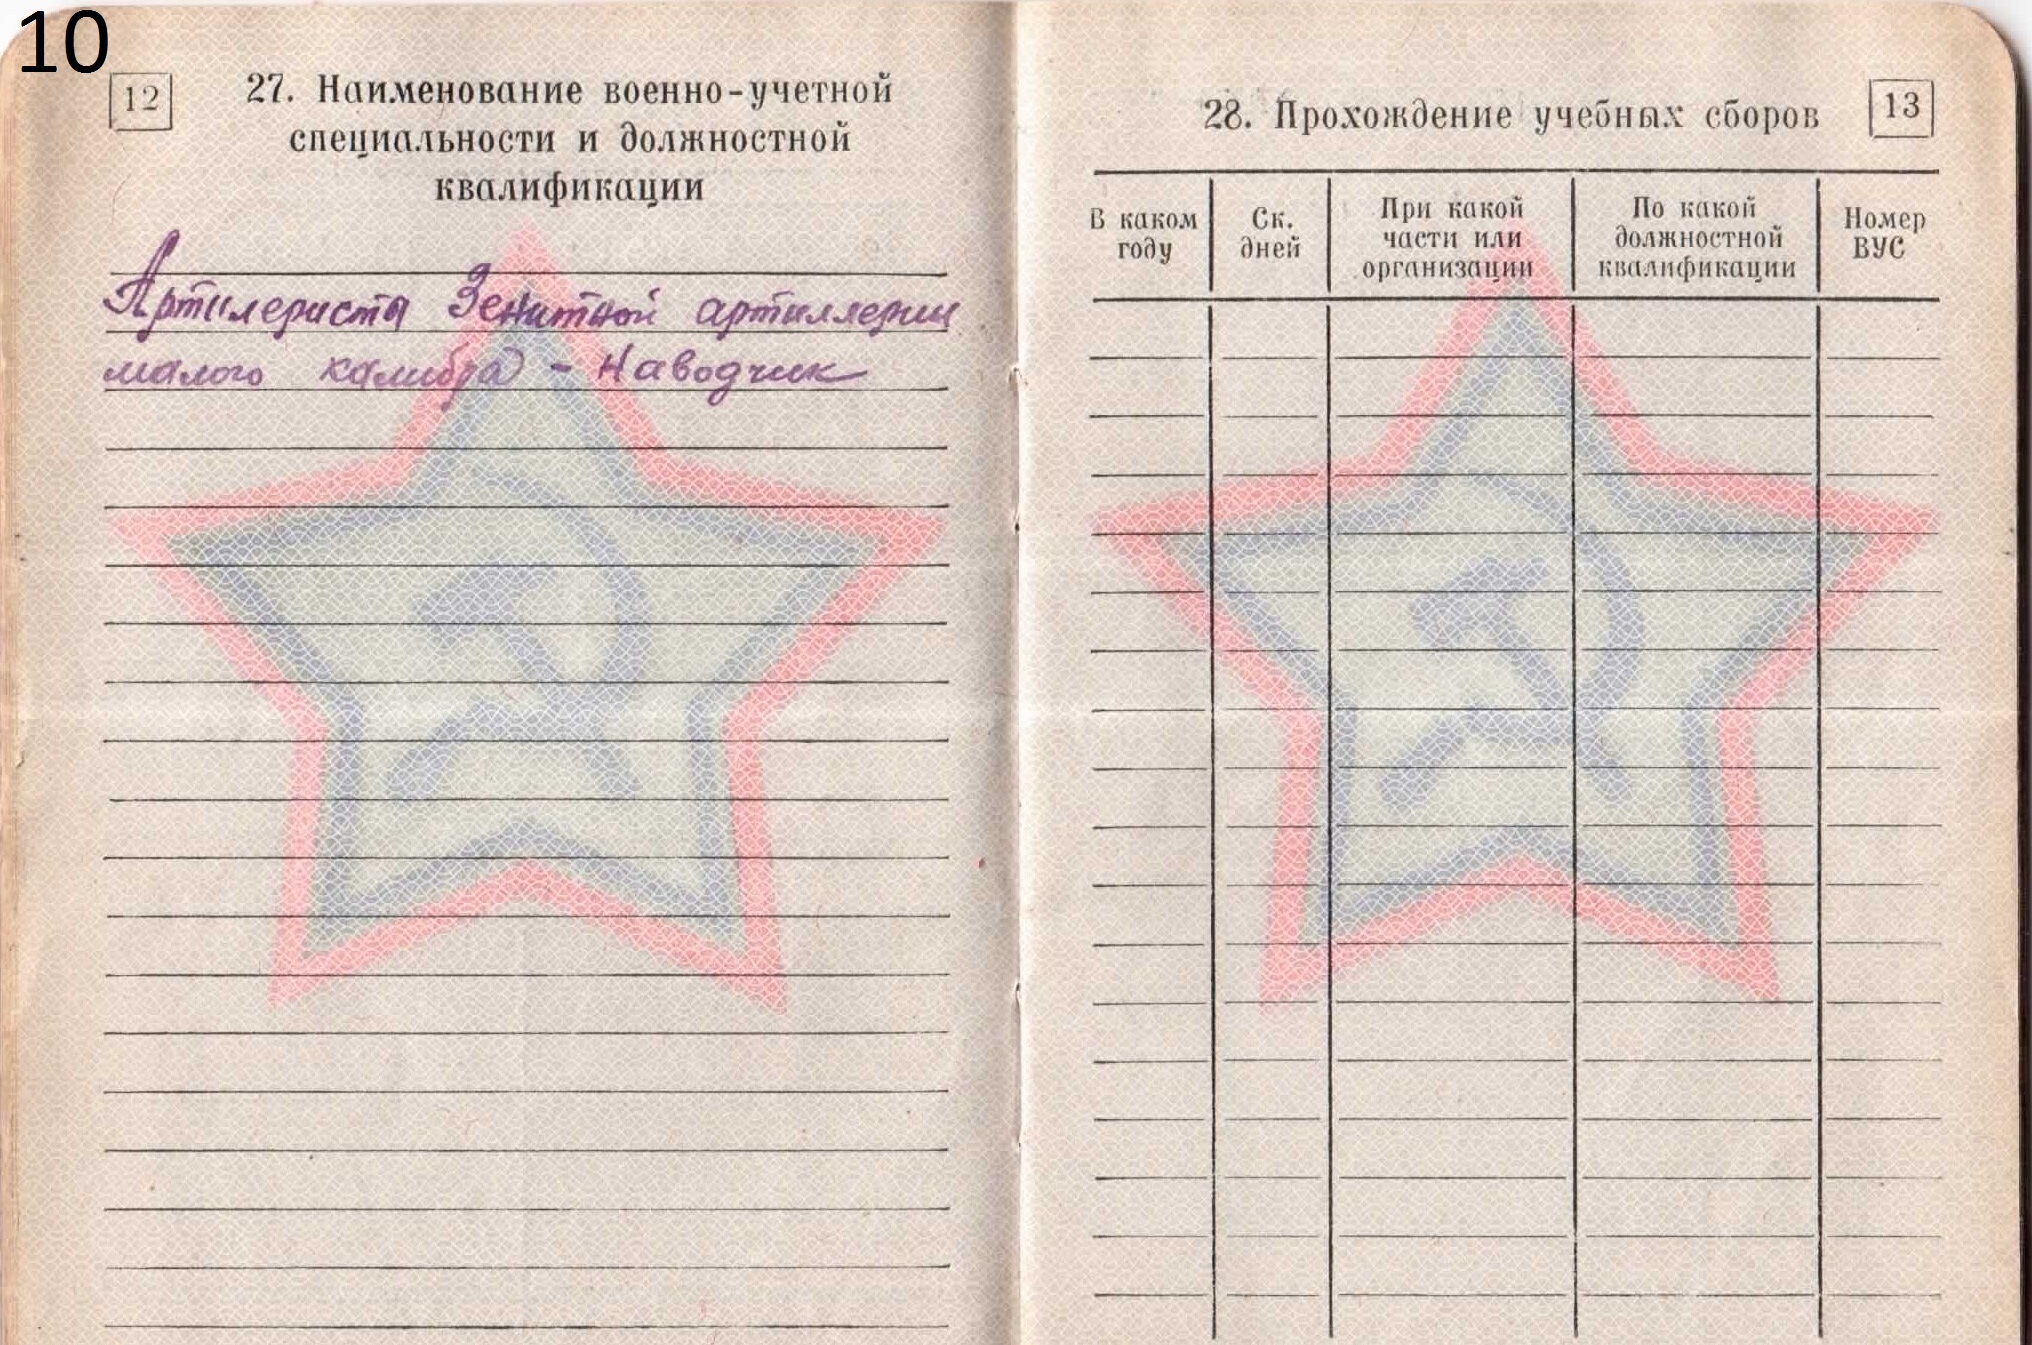 10
12
27. Наименование военно-учетной
специальности и должностной
квалификации
Артилеристы Зенитной артиллерии
малого калибра - Наводчик
28. Прохождение учебных сборов
13
В каком
году
Ск.
дней
При какой
части или
организации
По какой
должностной
квалификации
Номер
ВУС